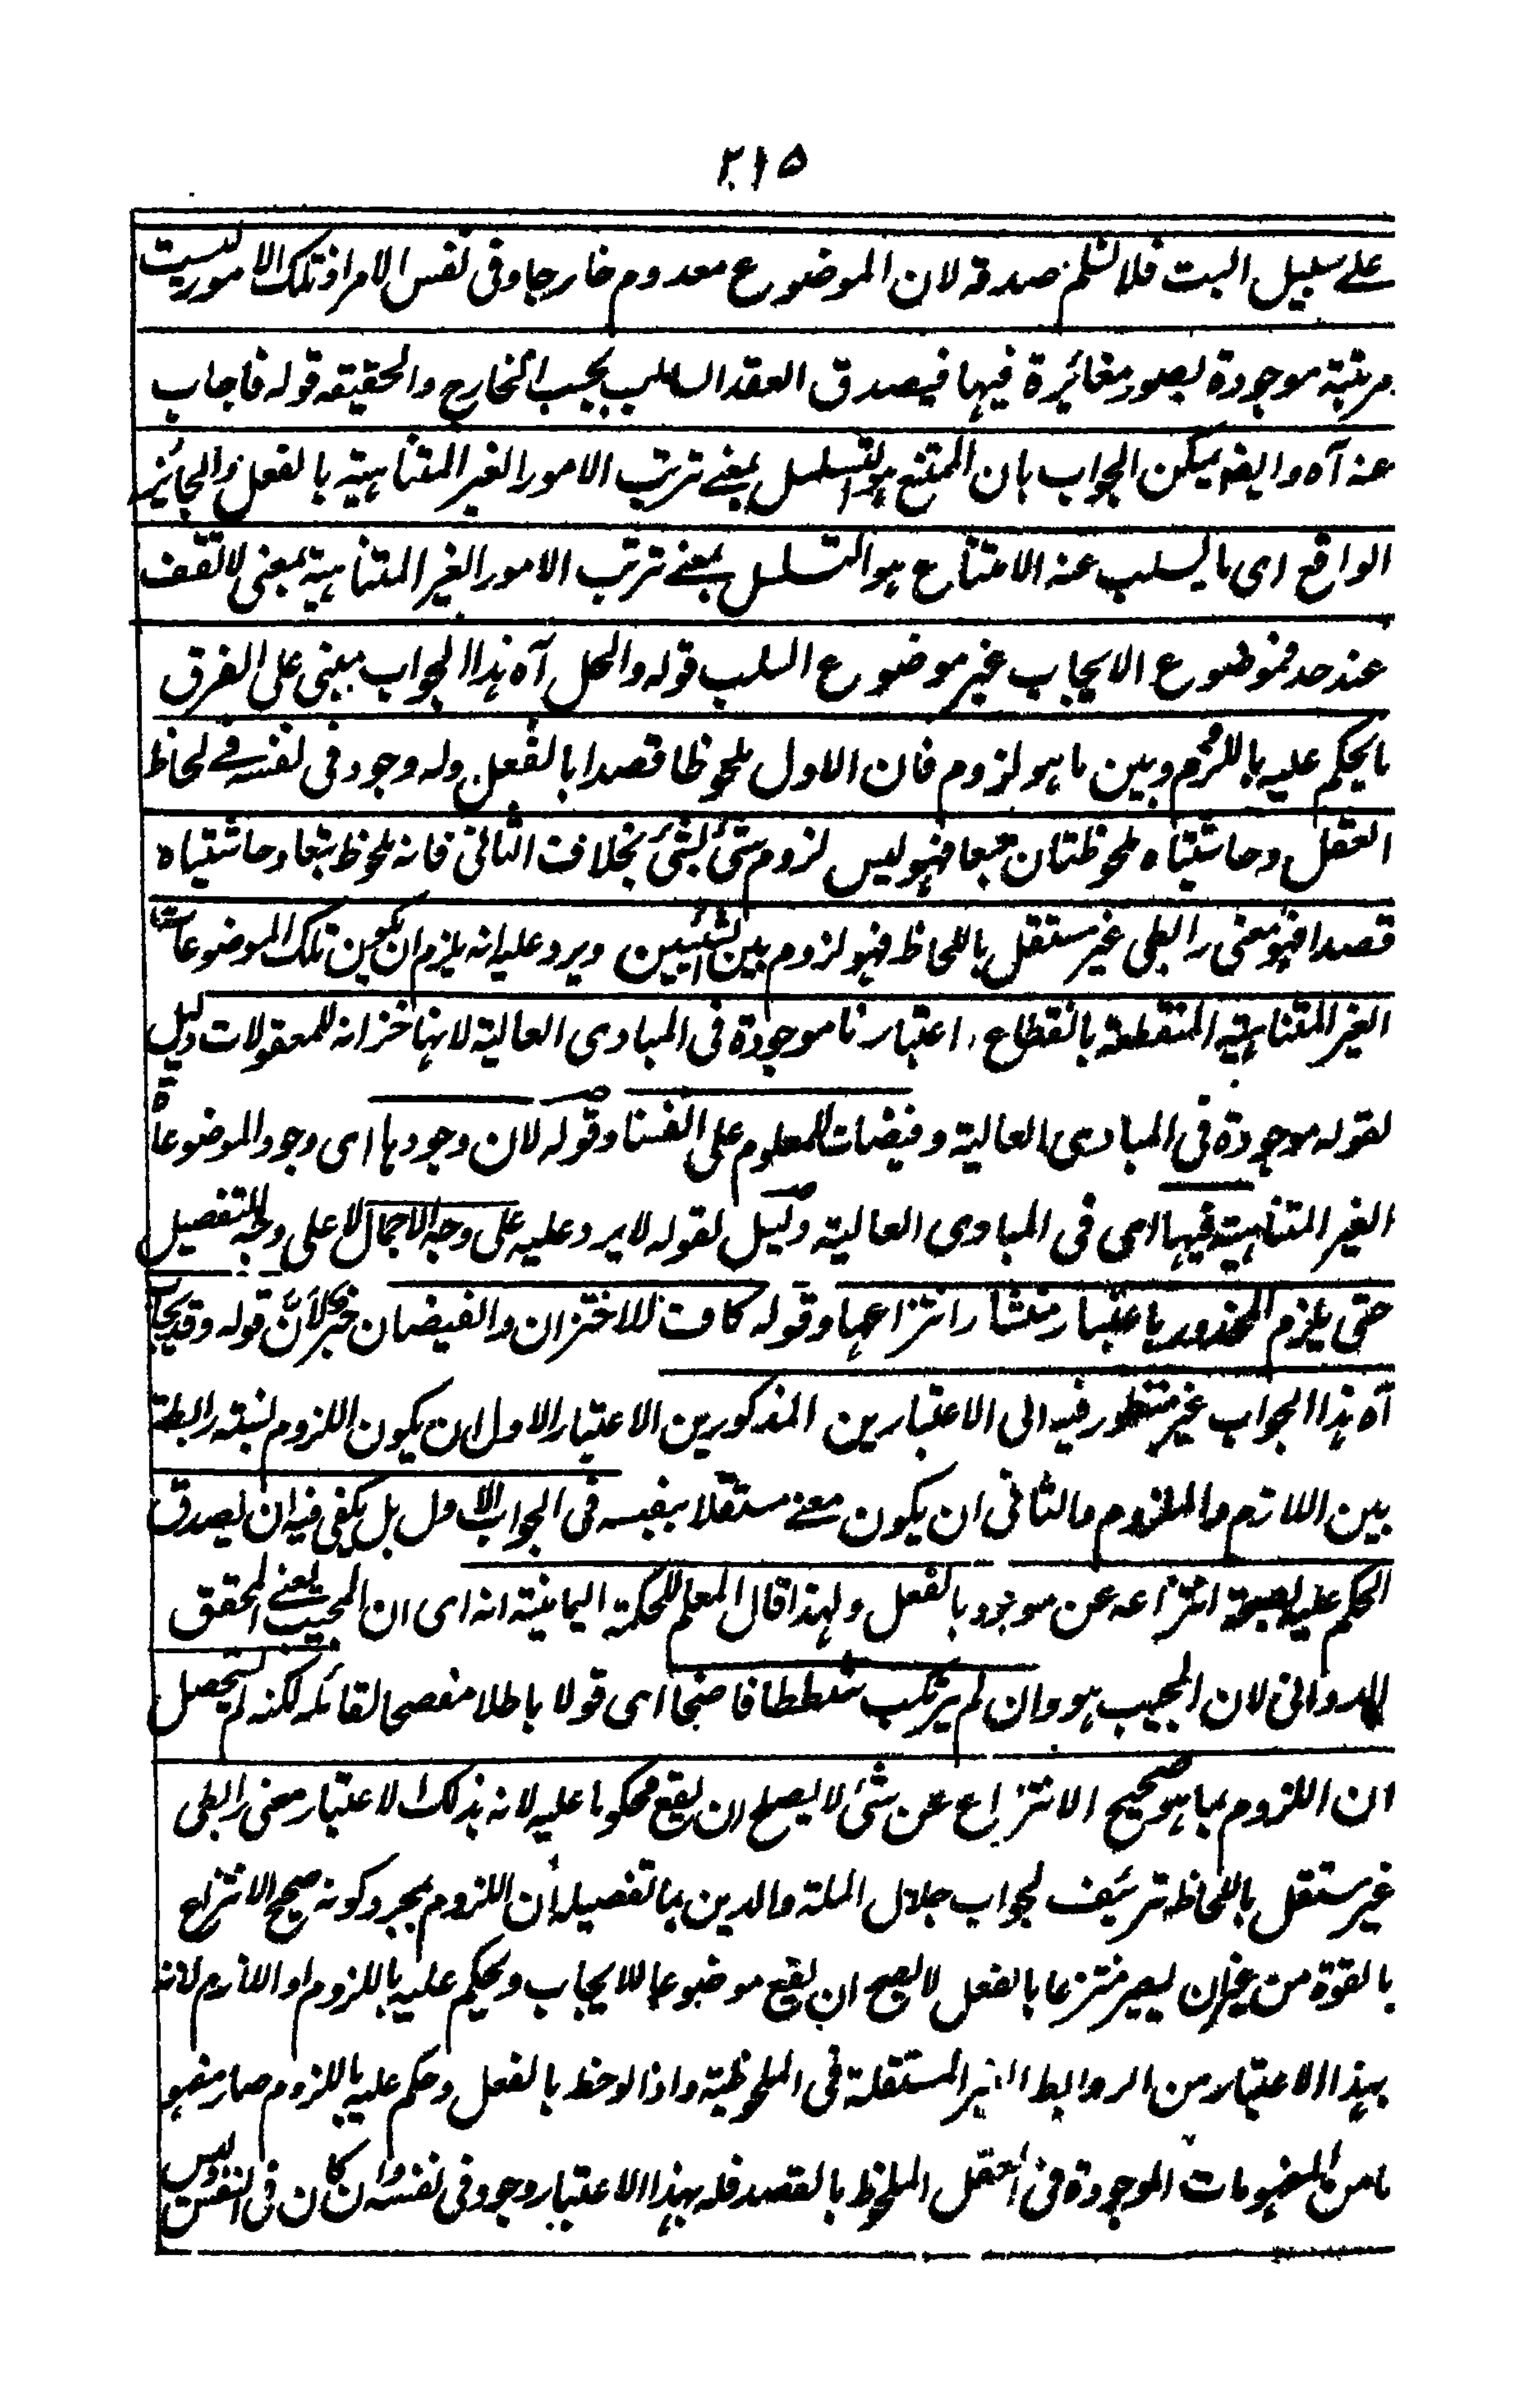 ٢١٥
على سبيل البت فلا نسلم صدقه لان الموضوع معدوم خارجا وفى نفس الامر اذ تلك الامور ليست
مرتبة موجودة بصور مغائرة فيها فيصدق العقد السالب بحسب الخارج والحقيقه قوله فاجاب
عنه آه وايضا يمكن الجواب بان الممتنع هو التسلسل بمعنے ترتب الامور الغير المتناهية بالفعل والجائز
الواقع اى ما يسلب عنه الامتناع هو التسلسل بمعنے ترتب الامور الغير المتناهية بمعنى لا تقف
عند حد فموضوع الايجاب غير موضوع السلب قوله والحل آه هذا الجواب مبنى على الفرق
ما يحكم عليه باللزوم وبين ما هو لزوم فان الاول ملحوظا قصدا بالفعل وله وجود فى نفسه فے لحاظ
العقل وحاشيتاه ملحوظتان تبعا فهو ليس لزوم شئ لشئ بخلاف الثانى فانه ملحوظ تبعا وحاشيتاه
قصدا فهو معنى رابطى غير مستقل باللحاظ فهو لزوم بين الشيئين ويرد عليه انه يلزم ان يكون تلك الموضوعات
الغير المتناهية المنقطعة بانقطاع اعتبارنا موجودة فى المبادى العالية لانها خزانة للمعقولات دليل
لقوله موجودة فى المبادى العالية وفيضات للمعلوم على انفسنا وقوله لان وجودها اى وجود الموضوعات
الغير المتناهية فيها اى فى المبادى العالية دليل لقوله لا يرد عليه على وجه الاجمال لا على وجه التفصيل
حتى يلزم المحذور باعتبار منشار انتزاعها وقوله كاف للاختزان والفيضان خبر لأنّ قوله وقد يجاب
آه هذا الجواب غير منظور فيه الى الاعتبارين المذكورين الاعتبار الاول ان يكون اللزوم نسبة رابطة
بين اللازم والملزوم والثانى ان يكون معنے مستقلا بنفسه فى الجواب الاول بل يكفى فيه ان يصدق
الحكم عليه بصحة انتزاعه عن موجود بالفعل ولهذا قال المعلم للحكمة اليمانية انه اى ان المجيب يعنے المحقق
الدوانى لان المجيب هو وان لم يرتكب شططا فاضحا اى قولا باطلا مفصحا لقائله لكنه لم يتحصل
ان اللزوم بما هو صحيح الانتزاع عن شئ لا يصلح ان يقع محكوما عليه لانه بذلك الاعتبار معنى رابطى
غير مستقل باللحاظ تزئيف لجواب جلال الملة والدين بما تفصيله ان اللزوم بمجرد كونه صحيح الانتزاع
بالقوة من غير ان يصير منتزعا بالفعل لا يصح ان يقع موضوعا للايجاب ويحكم عليه باللزوم او اللازم لانه
بهذا الاعتبار من الروابط الغير المستقلة فى الملحوظية واذا لوحظ بالفعل وحكم عليه باللزوم صار مفهو
ما من المفهومات الموجودة فى العقل الملحوظ بالقصد فله بهذا الاعتبار وجود فى نفسه وان كان فى النفس وليس